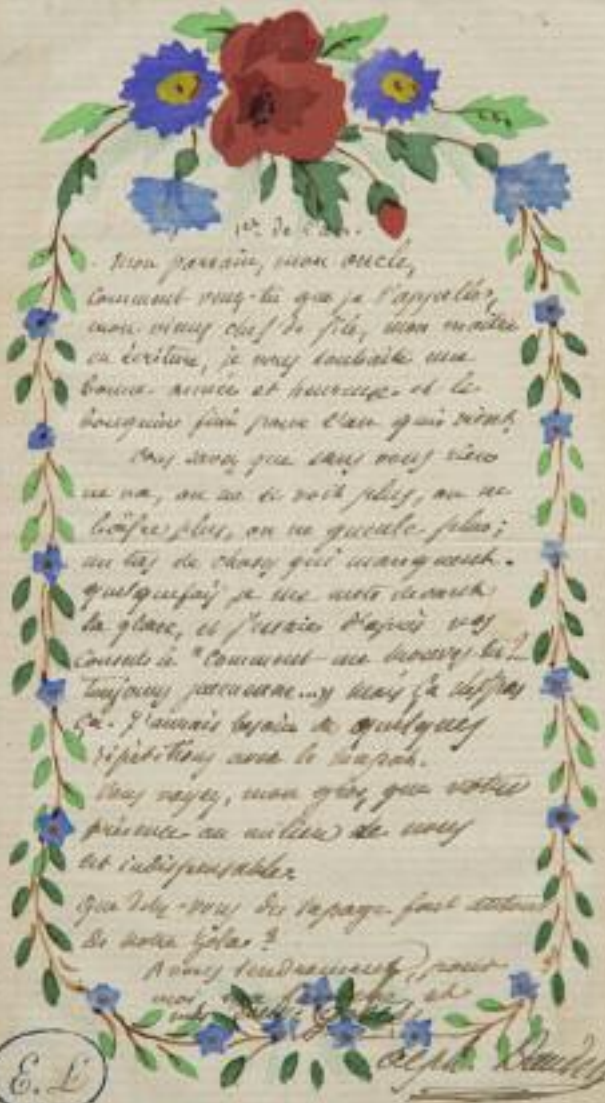 1er de l'an.
Mon parrain, mon oncle,
Comment veux-tu que je t'appelle,
mon vieux chef de file, mon maître
en écriture, je vous souhaite une
bonne année et heureuse et le
bouquin fini pour l'an qui vient.
Vous savez que sans vous rien
ne va, on ne se voit plus, on ne
bâfre plus, on ne gueule plus;
un tas de choses qui manquent.
quelquefois je me mets devant
la glace, et j'essaie d'après vos
conseils "Comment me trouves-tu?
Toujours jeune...." mais ça n'est pas
ça. J'aurais besoin de quelques
répétitions avec le
Vous voyez, mon gros, que votre
présence au milieu de nous
est indispensable.
Que dites-vous du tapage fait autour
de notre Zola?
A vous tendrement, pour
moi, ma et
mes
Alph. Daudet
E. L